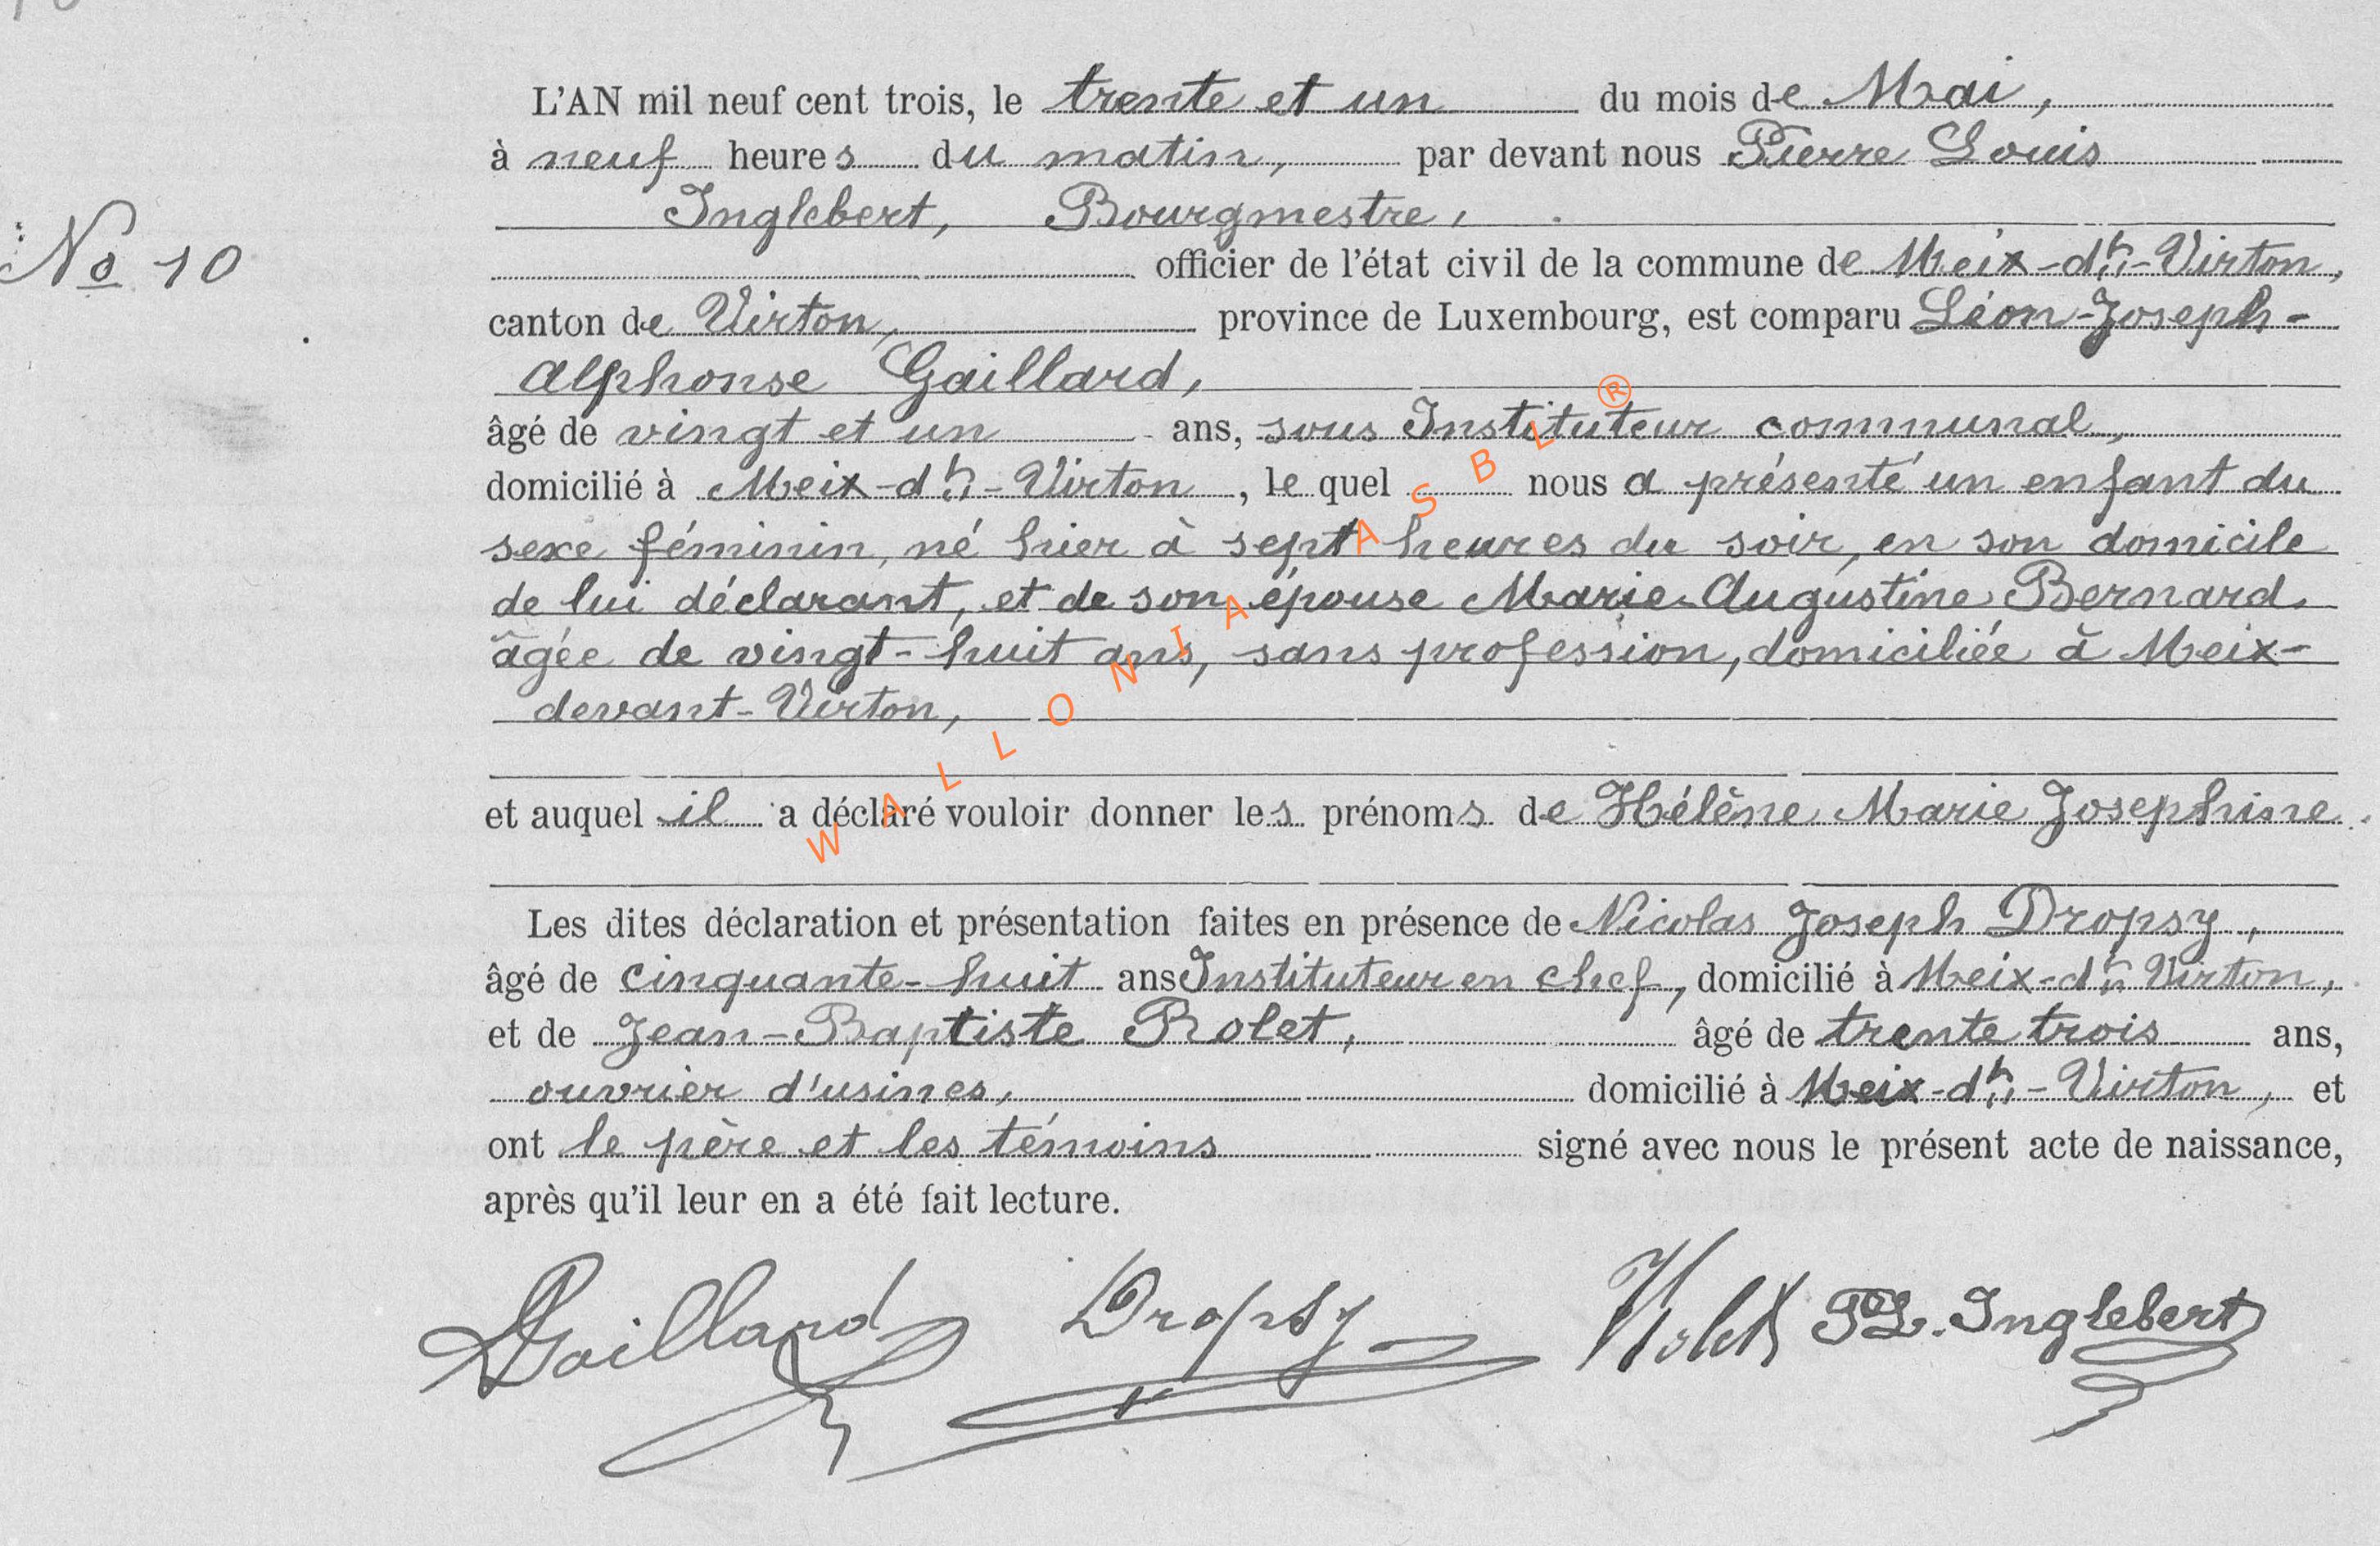 L'AN mil neuf cent trois, le trente et un du mois de Mai,
à neuf heures du matin, par devant nous Pierre Louis
Inglebert, Bourgmestre,
No 10
officier de l'état civil de la commune de Meix-dt-Virton,
canton de Virton, province de Luxembourg, est comparu Léon-Joseph-
Alphonse Gaillard,
âgé de vingt et un ans, sous Instituteur communal,
domicilié à Meix-dt-Virton, le quel nous a présenté un enfant du
sexe féminin, né hier à sept heures du soir, en son domicile
de lui déclarant, et de son épouse Marie-Augustine Bernard,
âgée de vingt-huit ans, sans profession, domiciliée à Meix-
devant-Virton,
et auquel il a déclaré vouloir donner les prénoms de Hélène Marie Josephine.
Les dites déclaration et présentation faites en présence de Nicolas Joseph Dropsy,
âgé de cinquante-huit ans Instituteur en chef, domicilié à Meix-dt Virton,
et de Jean-Baptiste Rolet, âgé de trente trois ans,
ouvrier d'usines, domicilié à Meix-dt-Virton, et
ont le père et les témoins signé avec nous le présent acte de naissance,
après qu'il leur en a été fait lecture.
LGaillard Dropsy Rolet PL. Inglebert
WALLONIA ASBL ®